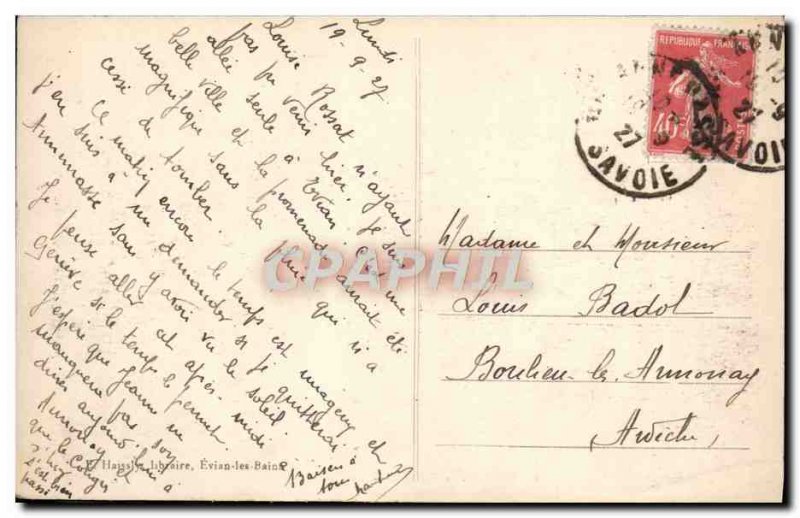 Lundi
19-9-27
Louise Rossat n'ayant
pas pu venir hier. Je suis
allée seule à Evian. C'est une
belle ville et la promenade aurait été
magnifique sans la pluie qui n'a
cessé de tomber.
Ce matin encore le temps est nuageux et
j'en suis à me demander si je quitterai
Annemasse sans y avoir vu le soleil.
Je pense aller cet après-midi
Genève si le temps le permet
J'espère que Jeanne ne
manquera pas son
dîner aujourd'hui à
Annonay et
que le Congés
s'est bien
passé
Baisers à
tous
E. Haissler Libraire, Évian-les-Bains
CPAPHIL
REPUBLIQUE FRANÇAISE
40
POSTES
27
SAVOIE
27
SAVOIE
Madame et Monsieur
Louis Badol
Boulieu-les-Annonay
(Ardèche)